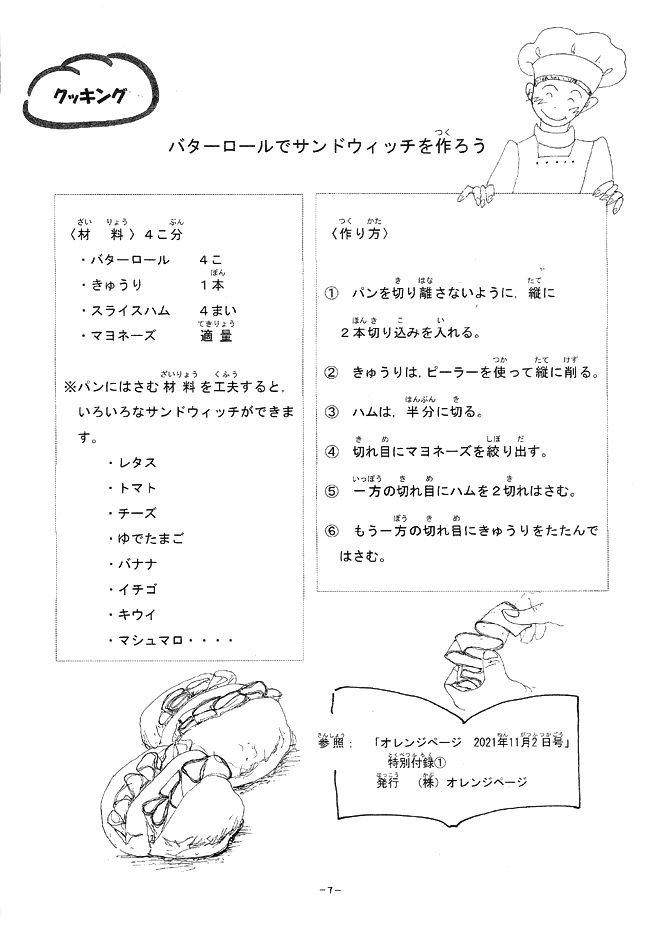 クッキング
バターロールでサンドウィッチを作ろう
つく
〈材料〉4こ分
ざい りょう ぶん
・バターロール 4こ
・きゅうり 1本
ぽん
・スライスハム 4まい
・マヨネーズ 適量
てきりょう
※パンにはさむ材料を工夫すると,
ざいりょう くふう
いろいろなサンドウィッチができま
す。
・レタス
・トマト
・チーズ
・ゆでたまご
・バナナ
・イチゴ
・キウイ
・マシュマロ・・・・
〈作り方〉
つく かた
① パンを切り離さないように,縦に
き はな たて
2本切り込みを入れる。
ほん き こ い
② きゅうりは,ピーラーを使って縦に削る。
つか たて けず
③ ハムは,半分に切る。
はんぶん き
④ 切れ目にマヨネーズを絞り出す。
き め しぼ だ
⑤ 一方の切れ目にハムを2切れはさむ。
いっぽう き め き
⑥ もう一方の切れ目にきゅうりをたたんで
ぽう き め
はさむ。
参照: 「オレンジページ 2021年11月2日号」
さんしょう ねん がつふつかごう
特別付録①
とくべつふろく
発行 (株)オレンジページ
はっこう かぶ
-7-